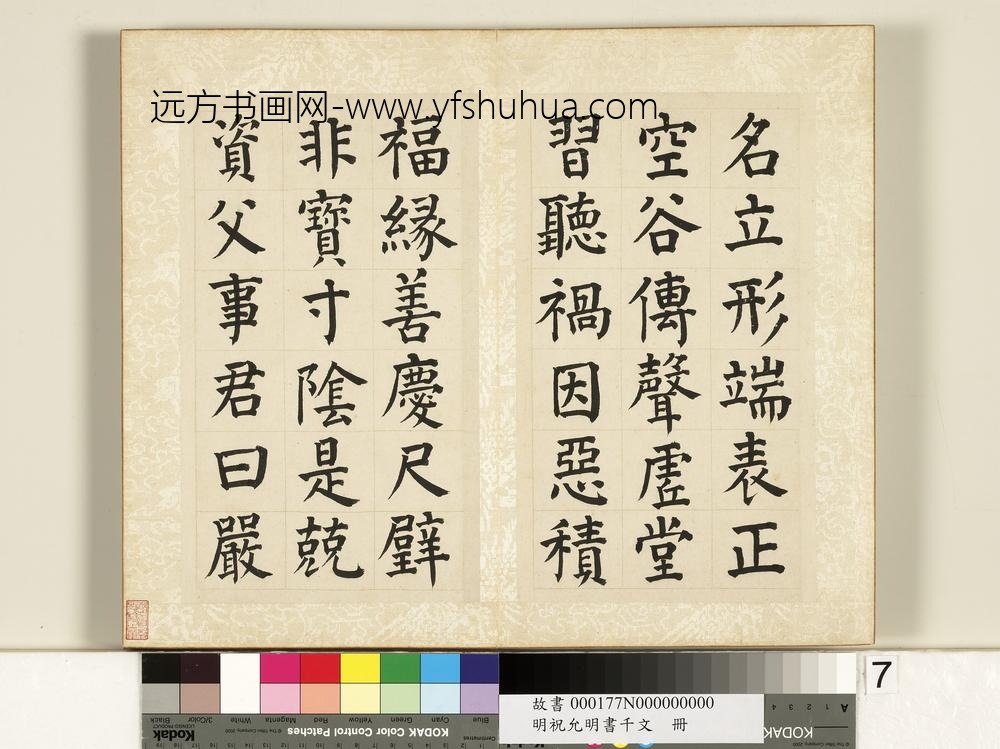 远方书画网-www.yfshuhua.com
名立形端表正
空谷傳聲虛堂
習聽禍因惡積
福緣善慶尺璧
非寶寸陰是競
資父事君曰嚴
7
故書 000177N000000000
明祝允明書千文 冊
KODAK Color Control Patches
Kodak
LICENSED PRODUCT
Blue
Cyan
Green
Yellow
Red
Magenta
White
3/Color
Black
KODAK
A 1 2 3 4